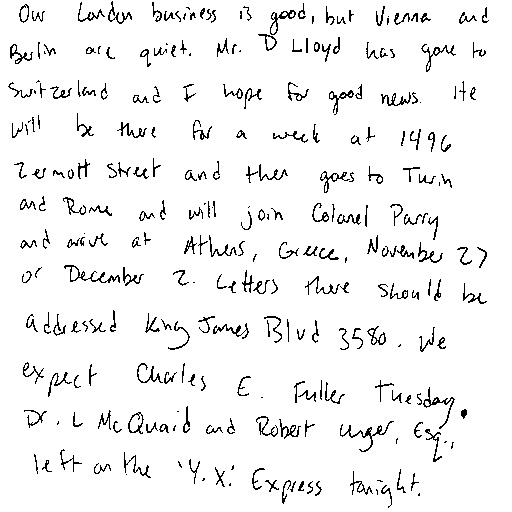 Our London business is good, but Vienna and
Berlin are quiet. Mr. D Lloyd has gone to
Switzerland and I hope for good news. He
will be there for a week at 1496
Zermott Street and then goes to Turin
and Rome and will join Colonel Parry
and arrive at Athens, Greece, November 27
or December 2. Letters there should be
addressed King James Blvd 3580. We
expect Charles E. Fuller Tuesday.
Dr. L McQuaid and Robert Unger, Esq.,
left on the 'Y.X.' Express tonight.